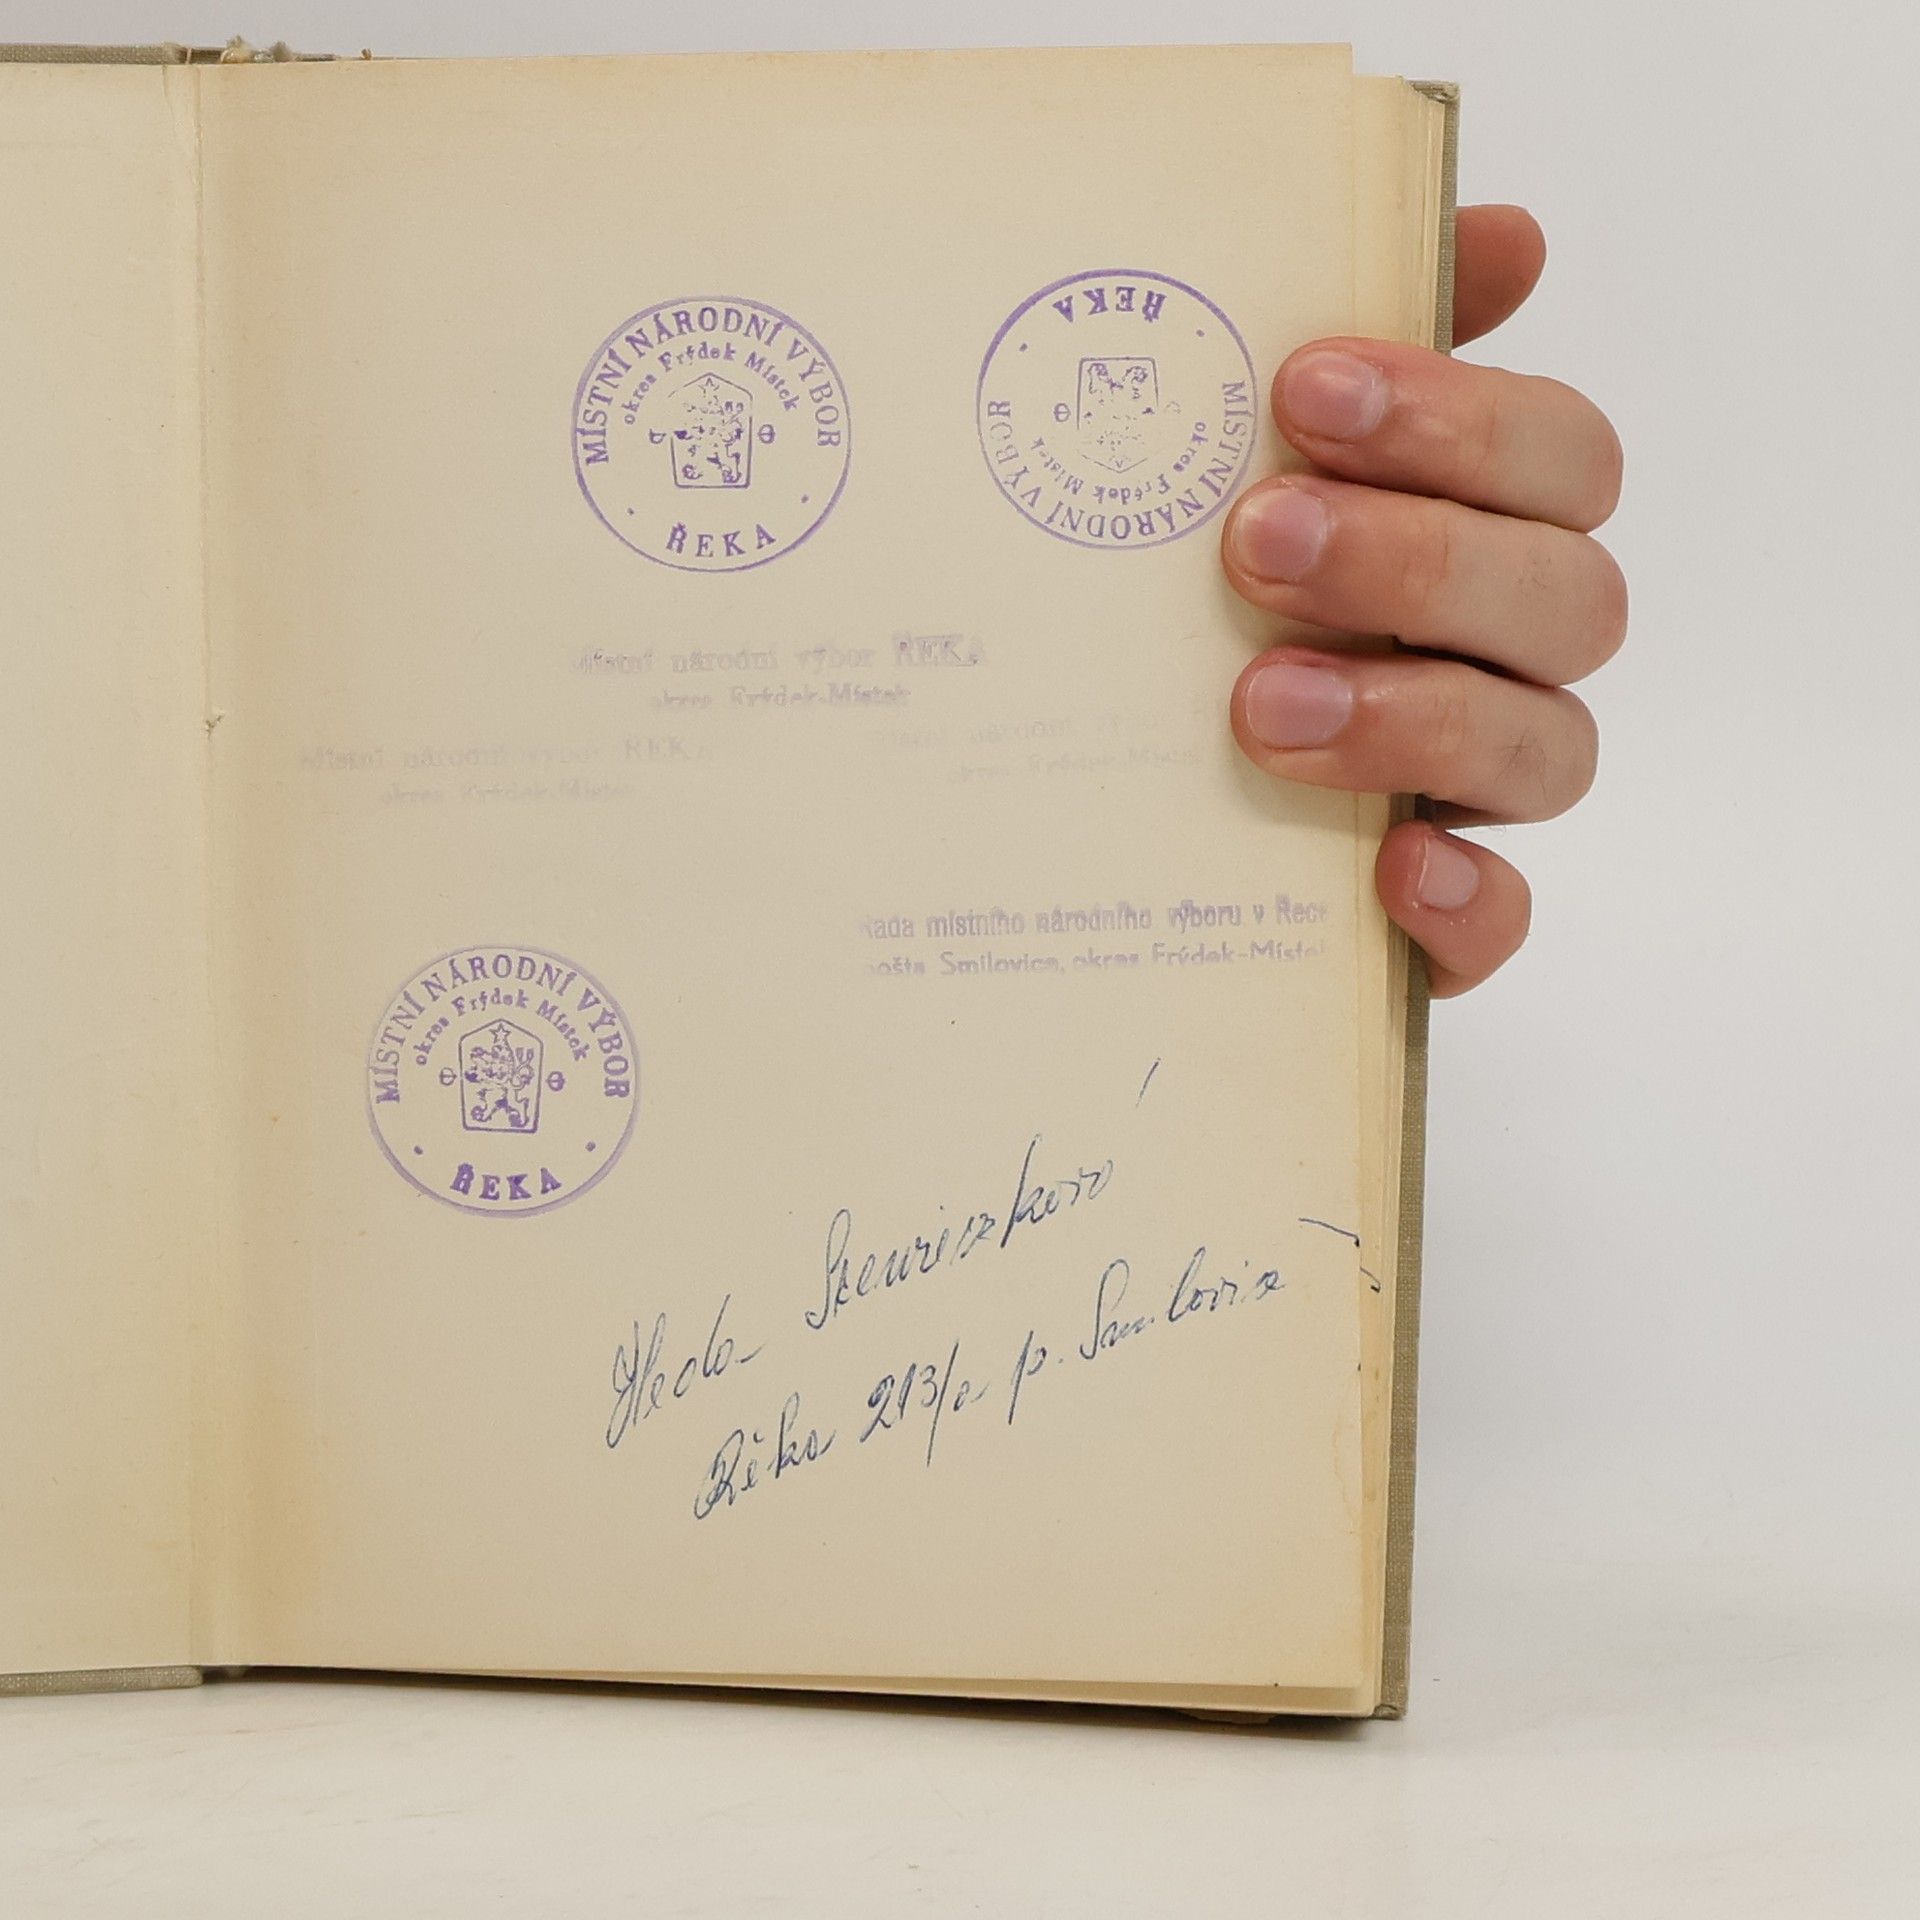 MÍSTNÍ NÁRODNÍ VÝBOR
okres Frýdek Místek
ŘEKA
ŘEKA
MÍSTNÍ NÁRODNÍ VÝBOR
okres Frýdek Místek
Místní národní výbor ŘEKA
okres Frýdek-Místek
Místní národní výbor ŘEKA
okres Frýdek-Místek
národní
okres Frýdek-Místek
Rada místního národního výboru v Řece
pošta Smilovice, okres Frýdek-Místek
MÍSTNÍ NÁRODNÍ VÝBOR
okres Frýdek Místek
ŘEKA
Heda
Řeka 213/a p. Smilovice